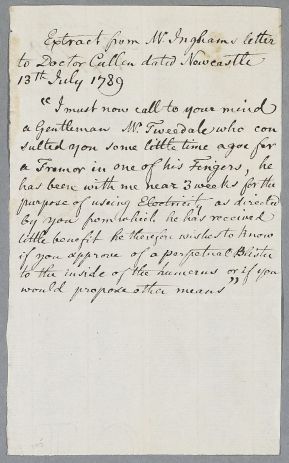 Extract from Mr. Inghams letter
to Doctor Cullen dated Newcastle
13th July 1789
"I must now call to your mind
a Gentleman Mr. Tweedale who con
sulted you some little time agoe for
a Tremor in one of his Fingers, he
has been with me near 3 weeks for the
purpose of useing Electricity as directed
by you from which he has received
little benefit he therefore wishes to know
if you approve of a perpetual Blister
to the inside of the humerus or if you
would propose other means"